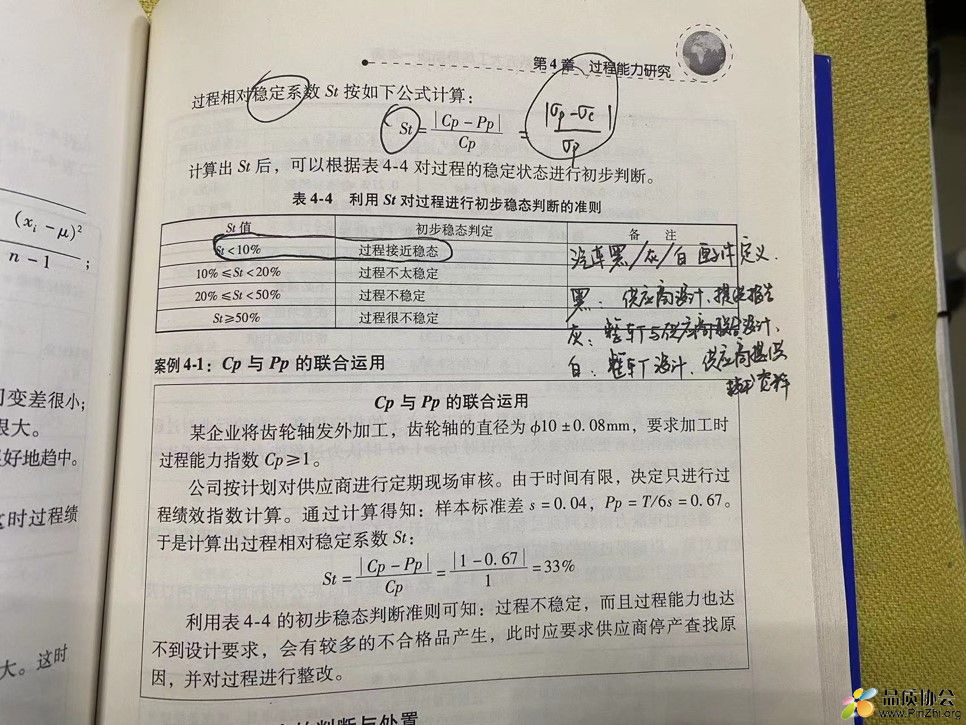 第4章 过程能力研究
过程相对稳定系数 St 按如下公式计算：
St = |Cp - Pp| / Cp = |σp - σc| / σp
计算出 St 后，可以根据表 4-4 对过程的稳定状态进行初步判断。
表 4-4 利用 St 对过程进行初步稳态判断的准则
St 值 初步稳态判定 备 注
St<10% 过程接近稳态 汽车黑/灰/白 件定义.
10%≤St<20% 过程不太稳定
20%≤St<50% 过程不稳定 黑：供应商设计、提供报告
St≥50% 过程很不稳定 灰：整车厂与供应商 设计.
白：整车厂设计、供应商提供
技术资料
案例 4-1：Cp 与 Pp 的联合运用
Cp 与 Pp 的联合运用
某企业将齿轮轴发外加工，齿轮轴的直径为 ϕ10±0.08mm，要求加工时
过程能力指数 Cp≥1。
公司按计划对供应商进行定期现场审核。由于时间有限，决定只进行过
程绩效指数计算。通过计算得知：样本标准差 s=0.04，Pp=T/6s=0.67。
于是计算出过程相对稳定系数 St：
St = |Cp - Pp| / Cp = |1 - 0.67| / 1 = 33%
利用表 4-4 的初步稳态判断准则可知：过程不稳定，而且过程能力也达
不到设计要求，会有较多的不合格品产生，此时应要求供应商停产查找原
因，并对过程进行整改。
的判断与处置
(xi - μ)²
n - 1 ；
变差很小；
很大。
好地趋中。
这时过程绩
大。这时
品质协会
www.PinZhi.org